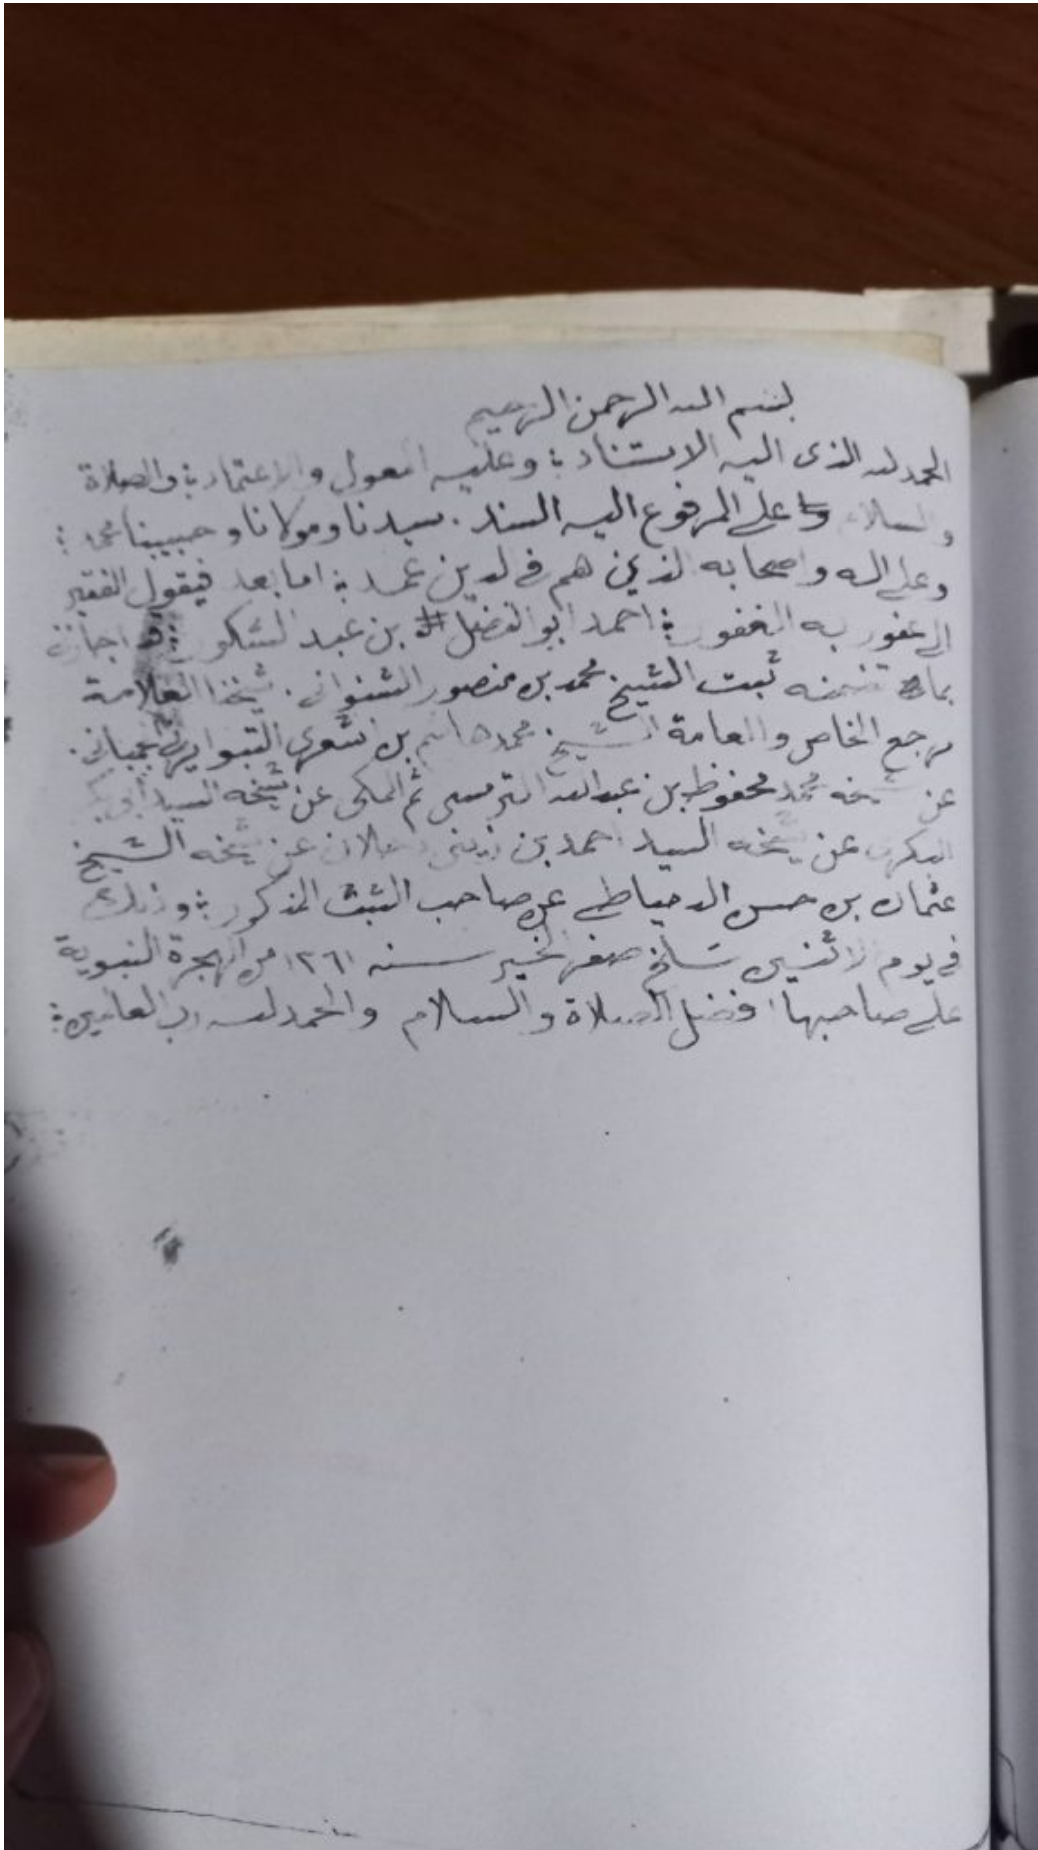 بسم الله الرحمن الرحيم
الحمد لله الذى اليه الاستناد ؛ وعليه المعول والاعتماد ؛ والصلاة
والسلام على المرفوع اليه السند . سيدنا ومولانا وحبيبنا محمد ؛
وعلى اله واصحابه الذين هم فى الدين عمد ؛ اما بعد فيقول الفقير
الى عفو ربه الغفور ؛ احمد ابو الفضل بن عبد الشكور ؛ اجازنى
بما تضمنه ثبت الشيخ محمد بن منصور الشنوانى . شيخنا العلامة
مرجع الخاص والعامة الشيخ محمد هاشم بن اشعرى التبوايرنج
عن شيخه محمد محفوظ بن عبد الله الترمسى ثم المكى عن شيخه السيد أبى بكر
البكرى عن شيخه السيد احمد بن زينى دحلان عن شيخه الشيخ
عثمان بن حسن الدمياطى عن صاحب الثبت المذكور ؛ وذلك
فى يوم الاثنين سلخ صفر الخير سنه ١٢٦١ من الهجرة النبوية
على صاحبها افضل الصلاة والسلام والحمد لله رب العالمين ؛